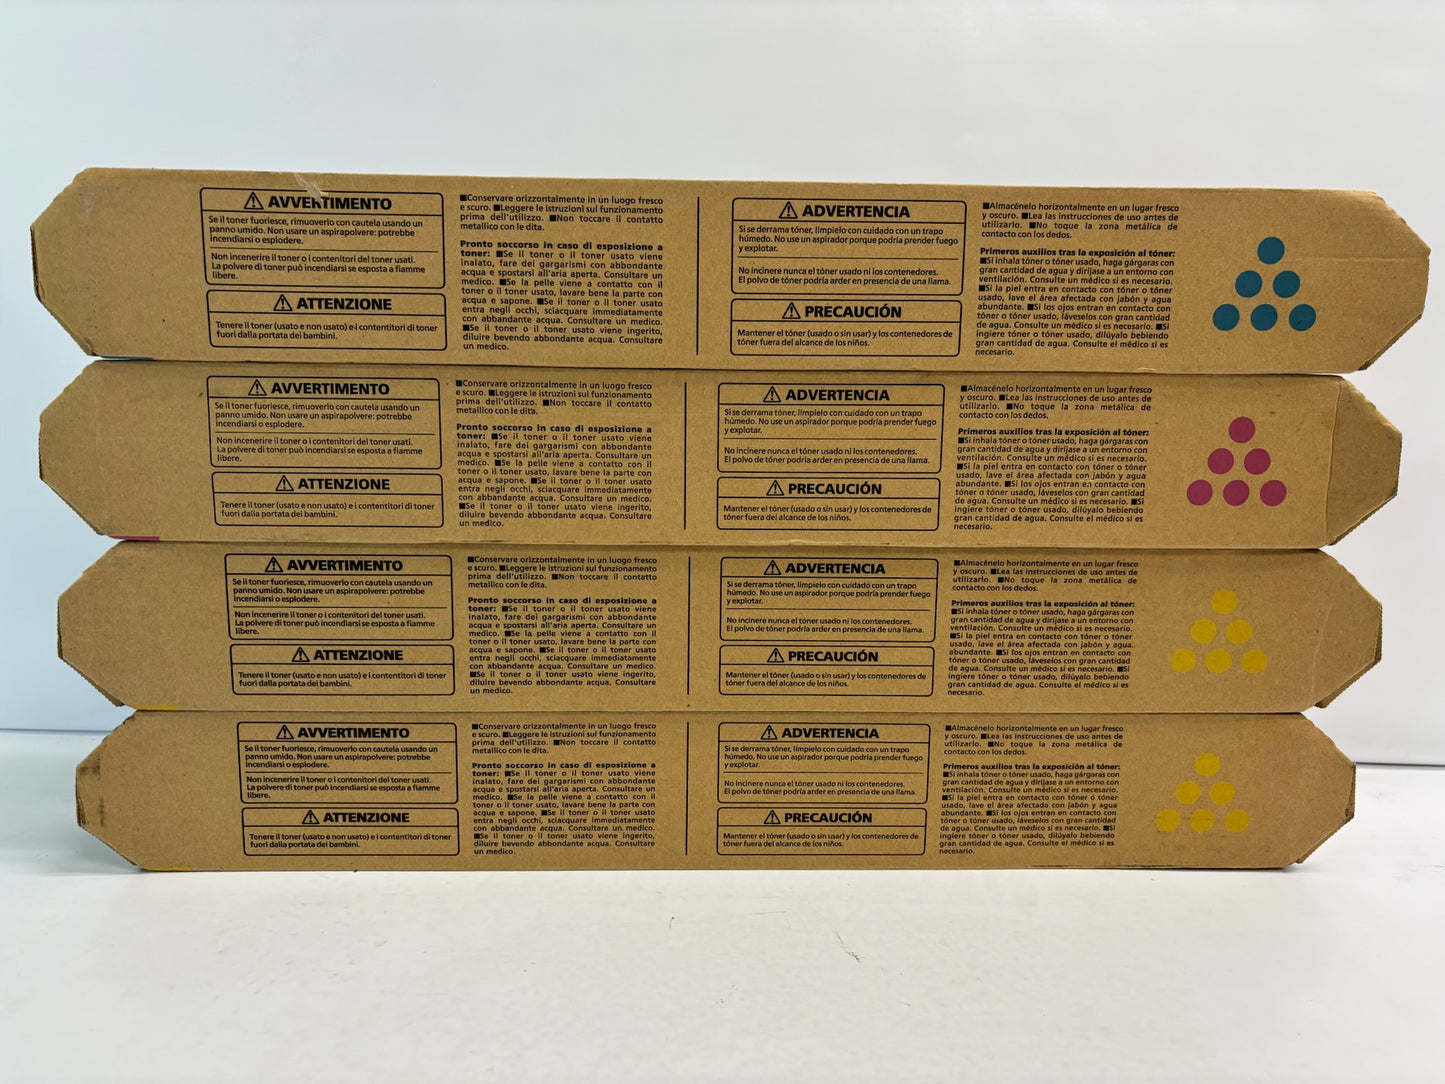 ⚠ AVVERTIMENTO
Se il toner fuoriesce, rimuoverlo con cautela usando un
panno umido. Non usare un aspirapolvere: potrebbe
incendiarsi o esplodere.
Non incenerire il toner o i contenitori del toner usati.
La polvere di toner può incendiarsi se esposta a fiamme
libere.
⚠ ATTENZIONE
Tenere il toner (usato e non usato) e i contentitori di toner
fuori dalla portata dei bambini.
■Conservare orizzontalmente in un luogo fresco
e scuro. ■Leggere le istruzioni sul funzionamento
prima dell'utilizzo. ■Non toccare il contatto
metallico con le dita.
Pronto soccorso in caso di esposizione a
toner: ■Se il toner o il toner usato viene
inalato, fare dei gargarismi con abbondante
acqua e spostarsi all'aria aperta. Consultare un
medico. ■Se la pelle viene a contatto con il
toner o il toner usato, lavare bene la parte con
acqua e sapone. ■Se il toner o il toner usato
entra negli occhi, sciacquare immediatamente
con abbandante acqua. Consultare un medico.
■Se il toner o il toner usato viene ingerito,
diluire bevendo abbondante acqua. Consultare
un medico.
⚠ ADVERTENCIA
Si se derrama tóner, límpielo con cuidado con un trapo
húmedo. No use un aspirador porque podría prender fuego
y explotar.
No incinere nunca el tóner usado ni los contenedores.
El polvo de tóner podría arder en presencia de una llama.
⚠ PRECAUCIÓN
Mantener el tóner (usado o sin usar) y los contenedores de
tóner fuera del alcance de los niños.
■Almacénelo horizontalmente en un lugar fresco
y oscuro. ■Lea las instrucciones de uso antes de
utilizarlo. ■No toque la zona metálica de
contacto con los dedos.
Primeros auxilios tras la exposición al tóner:
■Si inhala tóner o tóner usado, haga gárgaras con
gran cantidad de agua y diríjase a un entorno con
ventilación. Consulte un médico si es necesario.
■Si la piel entra en contacto con tóner o tóner
usado, lave el área afectada con jabón y agua
abundante. ■Si los ojos entran en contacto con
tóner o tóner usado, láveselos con gran cantidad
de agua. Consulte un médico si es necesario. ■Si
ingiere tóner o tóner usado, dilúyalo bebiendo
gran cantidad de agua. Consulte el médico si es
necesario.
⚠ AVVERTIMENTO
Se il toner fuoriesce, rimuoverlo con cautela usando un
panno umido. Non usare un aspirapolvere: potrebbe
incendiarsi o esplodere.
Non incenerire il toner o i contenitori del toner usati.
La polvere di toner può incendiarsi se esposta a fiamme
libere.
⚠ ATTENZIONE
Tenere il toner (usato e non usato) e i contentitori di toner
fuori dalla portata dei bambini.
■Conservare orizzontalmente in un luogo fresco
e scuro. ■Leggere le istruzioni sul funzionamento
prima dell'utilizzo. ■Non toccare il contatto
metallico con le dita.
Pronto soccorso in caso di esposizione a
toner: ■Se il toner o il toner usato viene
inalato, fare dei gargarismi con abbondante
acqua e spostarsi all'aria aperta. Consultare un
medico. ■Se la pelle viene a contatto con il
toner o il toner usato, lavare bene la parte con
acqua e sapone. ■Se il toner o il toner usato
entra negli occhi, sciacquare immediatamente
con abbandante acqua. Consultare un medico.
■Se il toner o il toner usato viene ingerito,
diluire bevendo abbondante acqua. Consultare
un medico.
⚠ ADVERTENCIA
Si se derrama tóner, límpielo con cuidado con un trapo
húmedo. No use un aspirador porque podría prender fuego
y explotar.
No incinere nunca el tóner usado ni los contenedores.
El polvo de tóner podría arder en presencia de una llama.
⚠ PRECAUCIÓN
Mantener el tóner (usado o sin usar) y los contenedores de
tóner fuera del alcance de los niños.
■Almacénelo horizontalmente en un lugar fresco
y oscuro. ■Lea las instrucciones de uso antes de
utilizarlo. ■No toque la zona metálica de
contacto con los dedos.
Primeros auxilios tras la exposición al tóner:
■Si inhala tóner o tóner usado, haga gárgaras con
gran cantidad de agua y diríjase a un entorno con
ventilación. Consulte un médico si es necesario.
■Si la piel entra en contacto con tóner o tóner
usado, lave el área afectada con jabón y agua
abundante. ■Si los ojos entran en contacto con
tóner o tóner usado, láveselos con gran cantidad
de agua. Consulte un médico si es necesario. ■Si
ingiere tóner o tóner usado, dilúyalo bebiendo
gran cantidad de agua. Consulte el médico si es
necesario.
⚠ AVVERTIMENTO
Se il toner fuoriesce, rimuoverlo con cautela usando un
panno umido. Non usare un aspirapolvere: potrebbe
incendiarsi o esplodere.
Non incenerire il toner o i contenitori del toner usati.
La polvere di toner può incendiarsi se esposta a fiamme
libere.
⚠ ATTENZIONE
Tenere il toner (usato e non usato) e i contentitori di toner
fuori dalla portata dei bambini.
■Conservare orizzontalmente in un luogo fresco
e scuro. ■Leggere le istruzioni sul funzionamento
prima dell'utilizzo. ■Non toccare il contatto
metallico con le dita.
Pronto soccorso in caso di esposizione a
toner: ■Se il toner o il toner usato viene
inalato, fare dei gargarismi con abbondante
acqua e spostarsi all'aria aperta. Consultare un
medico. ■Se la pelle viene a contatto con il
toner o il toner usato, lavare bene la parte con
acqua e sapone. ■Se il toner o il toner usato
entra negli occhi, sciacquare immediatamente
con abbandante acqua. Consultare un medico.
■Se il toner o il toner usato viene ingerito,
diluire bevendo abbondante acqua. Consultare
un medico.
⚠ ADVERTENCIA
Si se derrama tóner, límpielo con cuidado con un trapo
húmedo. No use un aspirador porque podría prender fuego
y explotar.
No incinere nunca el tóner usado ni los contenedores.
El polvo de tóner podría arder en presencia de una llama.
⚠ PRECAUCIÓN
Mantener el tóner (usado o sin usar) y los contenedores de
tóner fuera del alcance de los niños.
■Almacénelo horizontalmente en un lugar fresco
y oscuro. ■Lea las instrucciones de uso antes de
utilizarlo. ■No toque la zona metálica de
contacto con los dedos.
Primeros auxilios tras la exposición al tóner:
■Si inhala tóner o tóner usado, haga gárgaras con
gran cantidad de agua y diríjase a un entorno con
ventilación. Consulte un médico si es necesario.
■Si la piel entra en contacto con tóner o tóner
usado, lave el área afectada con jabón y agua
abundante. ■Si los ojos entran en contacto con
tóner o tóner usado, láveselos con gran cantidad
de agua. Consulte un médico si es necesario. ■Si
ingiere tóner o tóner usado, dilúyalo bebiendo
gran cantidad de agua. Consulte el médico si es
necesario.
⚠ AVVERTIMENTO
Se il toner fuoriesce, rimuoverlo con cautela usando un
panno umido. Non usare un aspirapolvere: potrebbe
incendiarsi o esplodere.
Non incenerire il toner o i contenitori del toner usati.
La polvere di toner può incendiarsi se esposta a fiamme
libere.
⚠ ATTENZIONE
Tenere il toner (usato e non usato) e i contentitori di toner
fuori dalla portata dei bambini.
■Conservare orizzontalmente in un luogo fresco
e scuro. ■Leggere le istruzioni sul funzionamento
prima dell'utilizzo. ■Non toccare il contatto
metallico con le dita.
Pronto soccorso in caso di esposizione a
toner: ■Se il toner o il toner usato viene
inalato, fare dei gargarismi con abbondante
acqua e spostarsi all'aria aperta. Consultare un
medico. ■Se la pelle viene a contatto con il
toner o il toner usato, lavare bene la parte con
acqua e sapone. ■Se il toner o il toner usato
entra negli occhi, sciacquare immediatamente
con abbandante acqua. Consultare un medico.
■Se il toner o il toner usato viene ingerito,
diluire bevendo abbondante acqua. Consultare
un medico.
⚠ ADVERTENCIA
Si se derrama tóner, límpielo con cuidado con un trapo
húmedo. No use un aspirador porque podría prender fuego
y explotar.
No incinere nunca el tóner usado ni los contenedores.
El polvo de tóner podría arder en presencia de una llama.
⚠ PRECAUCIÓN
Mantener el tóner (usado o sin usar) y los contenedores de
tóner fuera del alcance de los niños.
■Almacénelo horizontalmente en un lugar fresco
y oscuro. ■Lea las instrucciones de uso antes de
utilizarlo. ■No toque la zona metálica de
contacto con los dedos.
Primeros auxilios tras la exposición al tóner:
■Si inhala tóner o tóner usado, haga gárgaras con
gran cantidad de agua y diríjase a un entorno con
ventilación. Consulte un médico si es necesario.
■Si la piel entra en contacto con tóner o tóner
usado, lave el área afectada con jabón y agua
abundante. ■Si los ojos entran en contacto con
tóner o tóner usado, láveselos con gran cantidad
de agua. Consulte un médico si es necesario. ■Si
ingiere tóner o tóner usado, dilúyalo bebiendo
gran cantidad de agua. Consulte el médico si es
necesario.